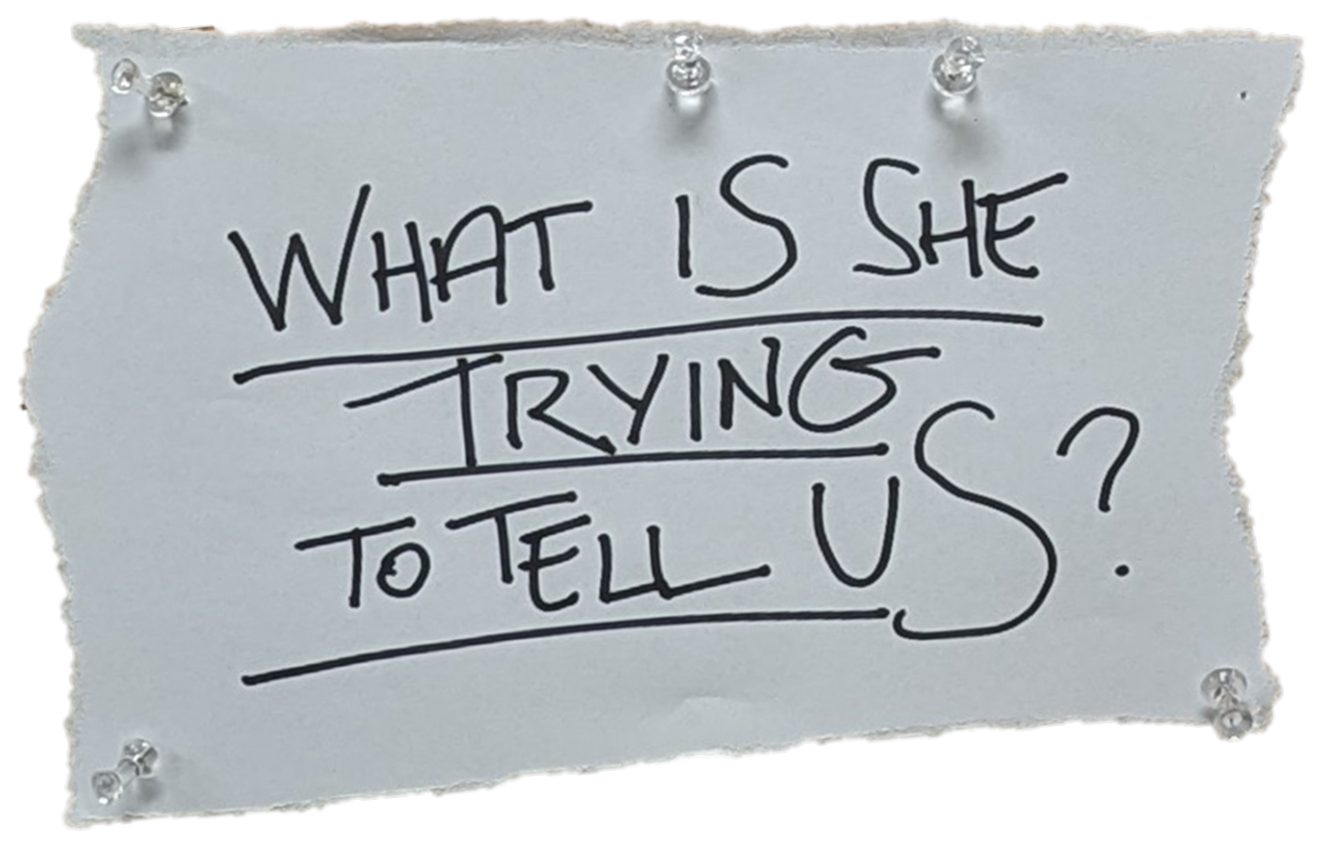 WHAT IS SHE
TRYING
TO TELL US?